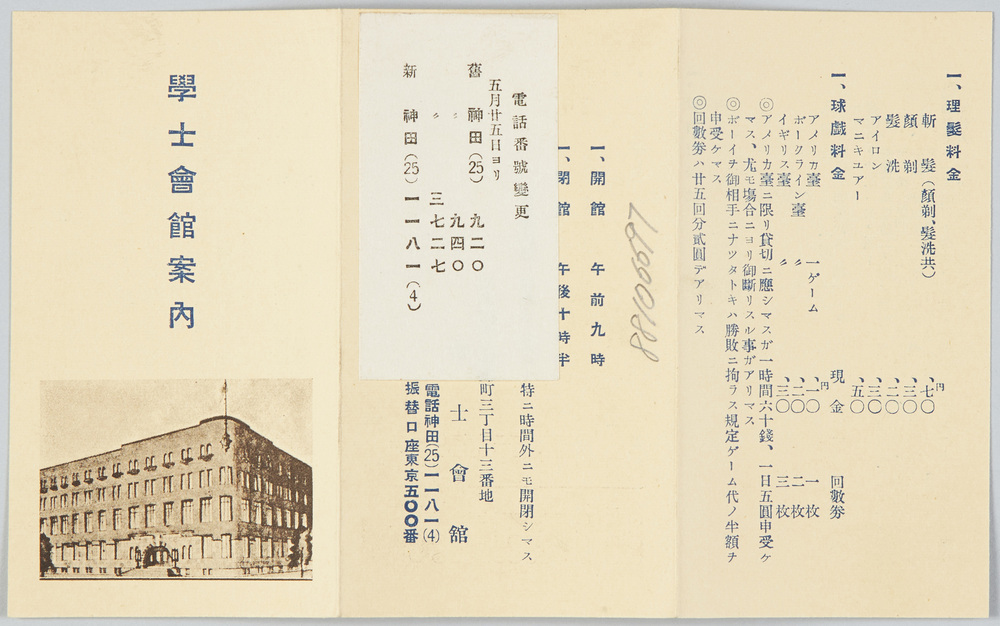 一、理髮料金
斬髮(顏剃、髮洗共) 、七〇円
顏剃 、三〇
髮洗 、二〇
アイロン 、三〇
マニキユアー 、五〇
一、球戲料金 現金 回數券
アメリカ臺 一ゲーム 、一〇円 一枚
ボークライン臺 〃 、二〇 二枚
イギリス臺 〃 、三〇 三枚
◎アメリカ臺ニ限リ貸切ニ應シマスガ一時間六十錢、一日五圓申受ケ
マス、尤モ場合ニヨリ御斷リスル事ガアリマス
◎ボーイヂ御相手ニナツタトキハ勝敗ニ拘ラス規定ゲーム代ノ半額ヂ
申受ケマス
◎回數券ハ廿五回分貳圓デアリマス
88100597
一、開館 午前九時
一、閉館 午後十時半
特ニ時間外ニモ開閉シマス
町三丁目十三番地
士會館
電話神田(25)一一八一(4)
振替口座東京五〇〇番
電話番號變更
五月廿五日ヨリ
舊 神田(25) 九二〇
〃 九四〇
〃 三七二七
新 神田(25)一一八一(4)
學士會館案內